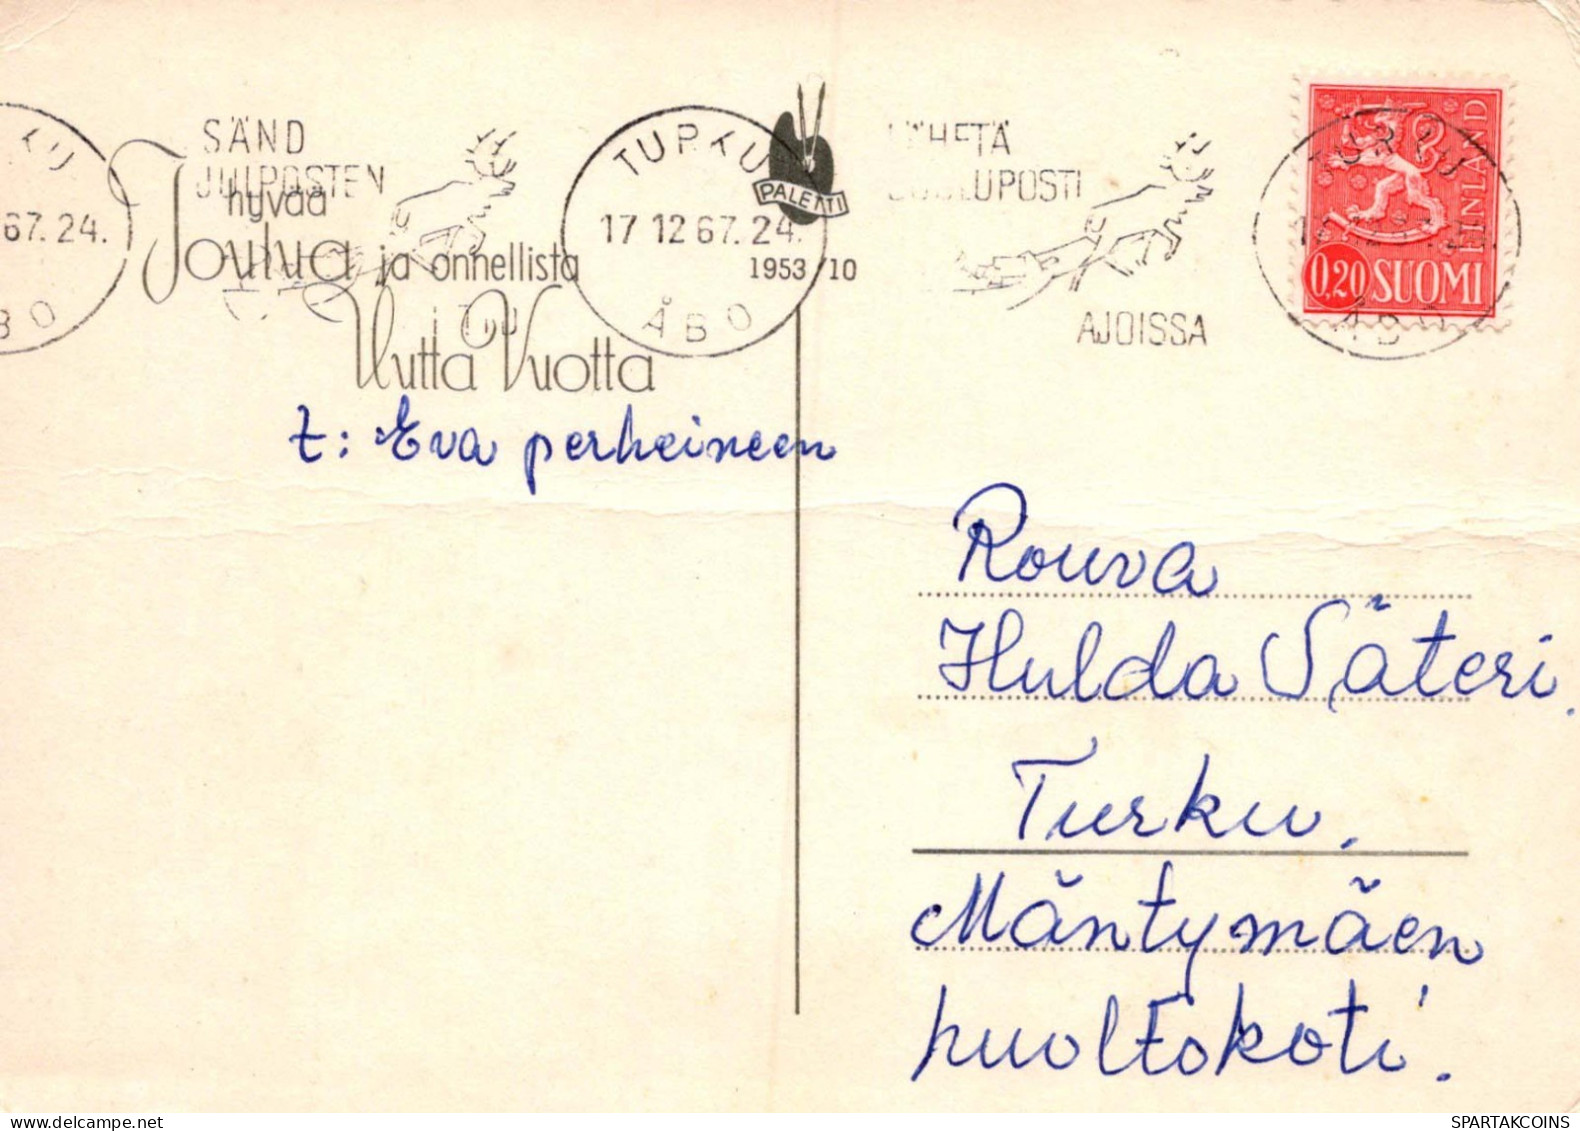 SÄND
JULPOSTEN
I TID
TURKU
17 12 67. 24.
ÅBO
67. 24.
PALETTI
1953/10
LÄHETÄ
JOULUPOSTI
AJOISSA
TURKU
ÅBO
FINLAND
0,20 SUOMI
hyvää
Joulua ja onnellista
Uutta Vuotta
t: Eva perheineen
Rouva
Hulda Säteri.
Turku.
Mäntymäen
huoltokoti.
SPARTAKCOINS